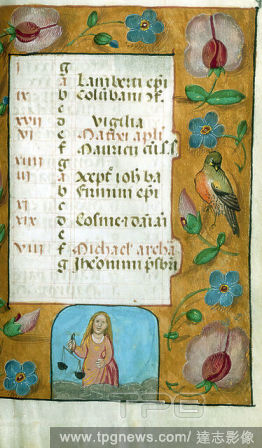 g
a Lamberti epi
ix b Columbani
c
xvii d Vigilia
vi e Mathei apli
f Mauricii c.s.s.
xiiii g
a xept ioh ba
b Firmini epi
xi c
xix d Cosme damiani
e
viii f Michael archa
g Iheronimi psbri
TPG
www.tpgnews.com / 達志影像